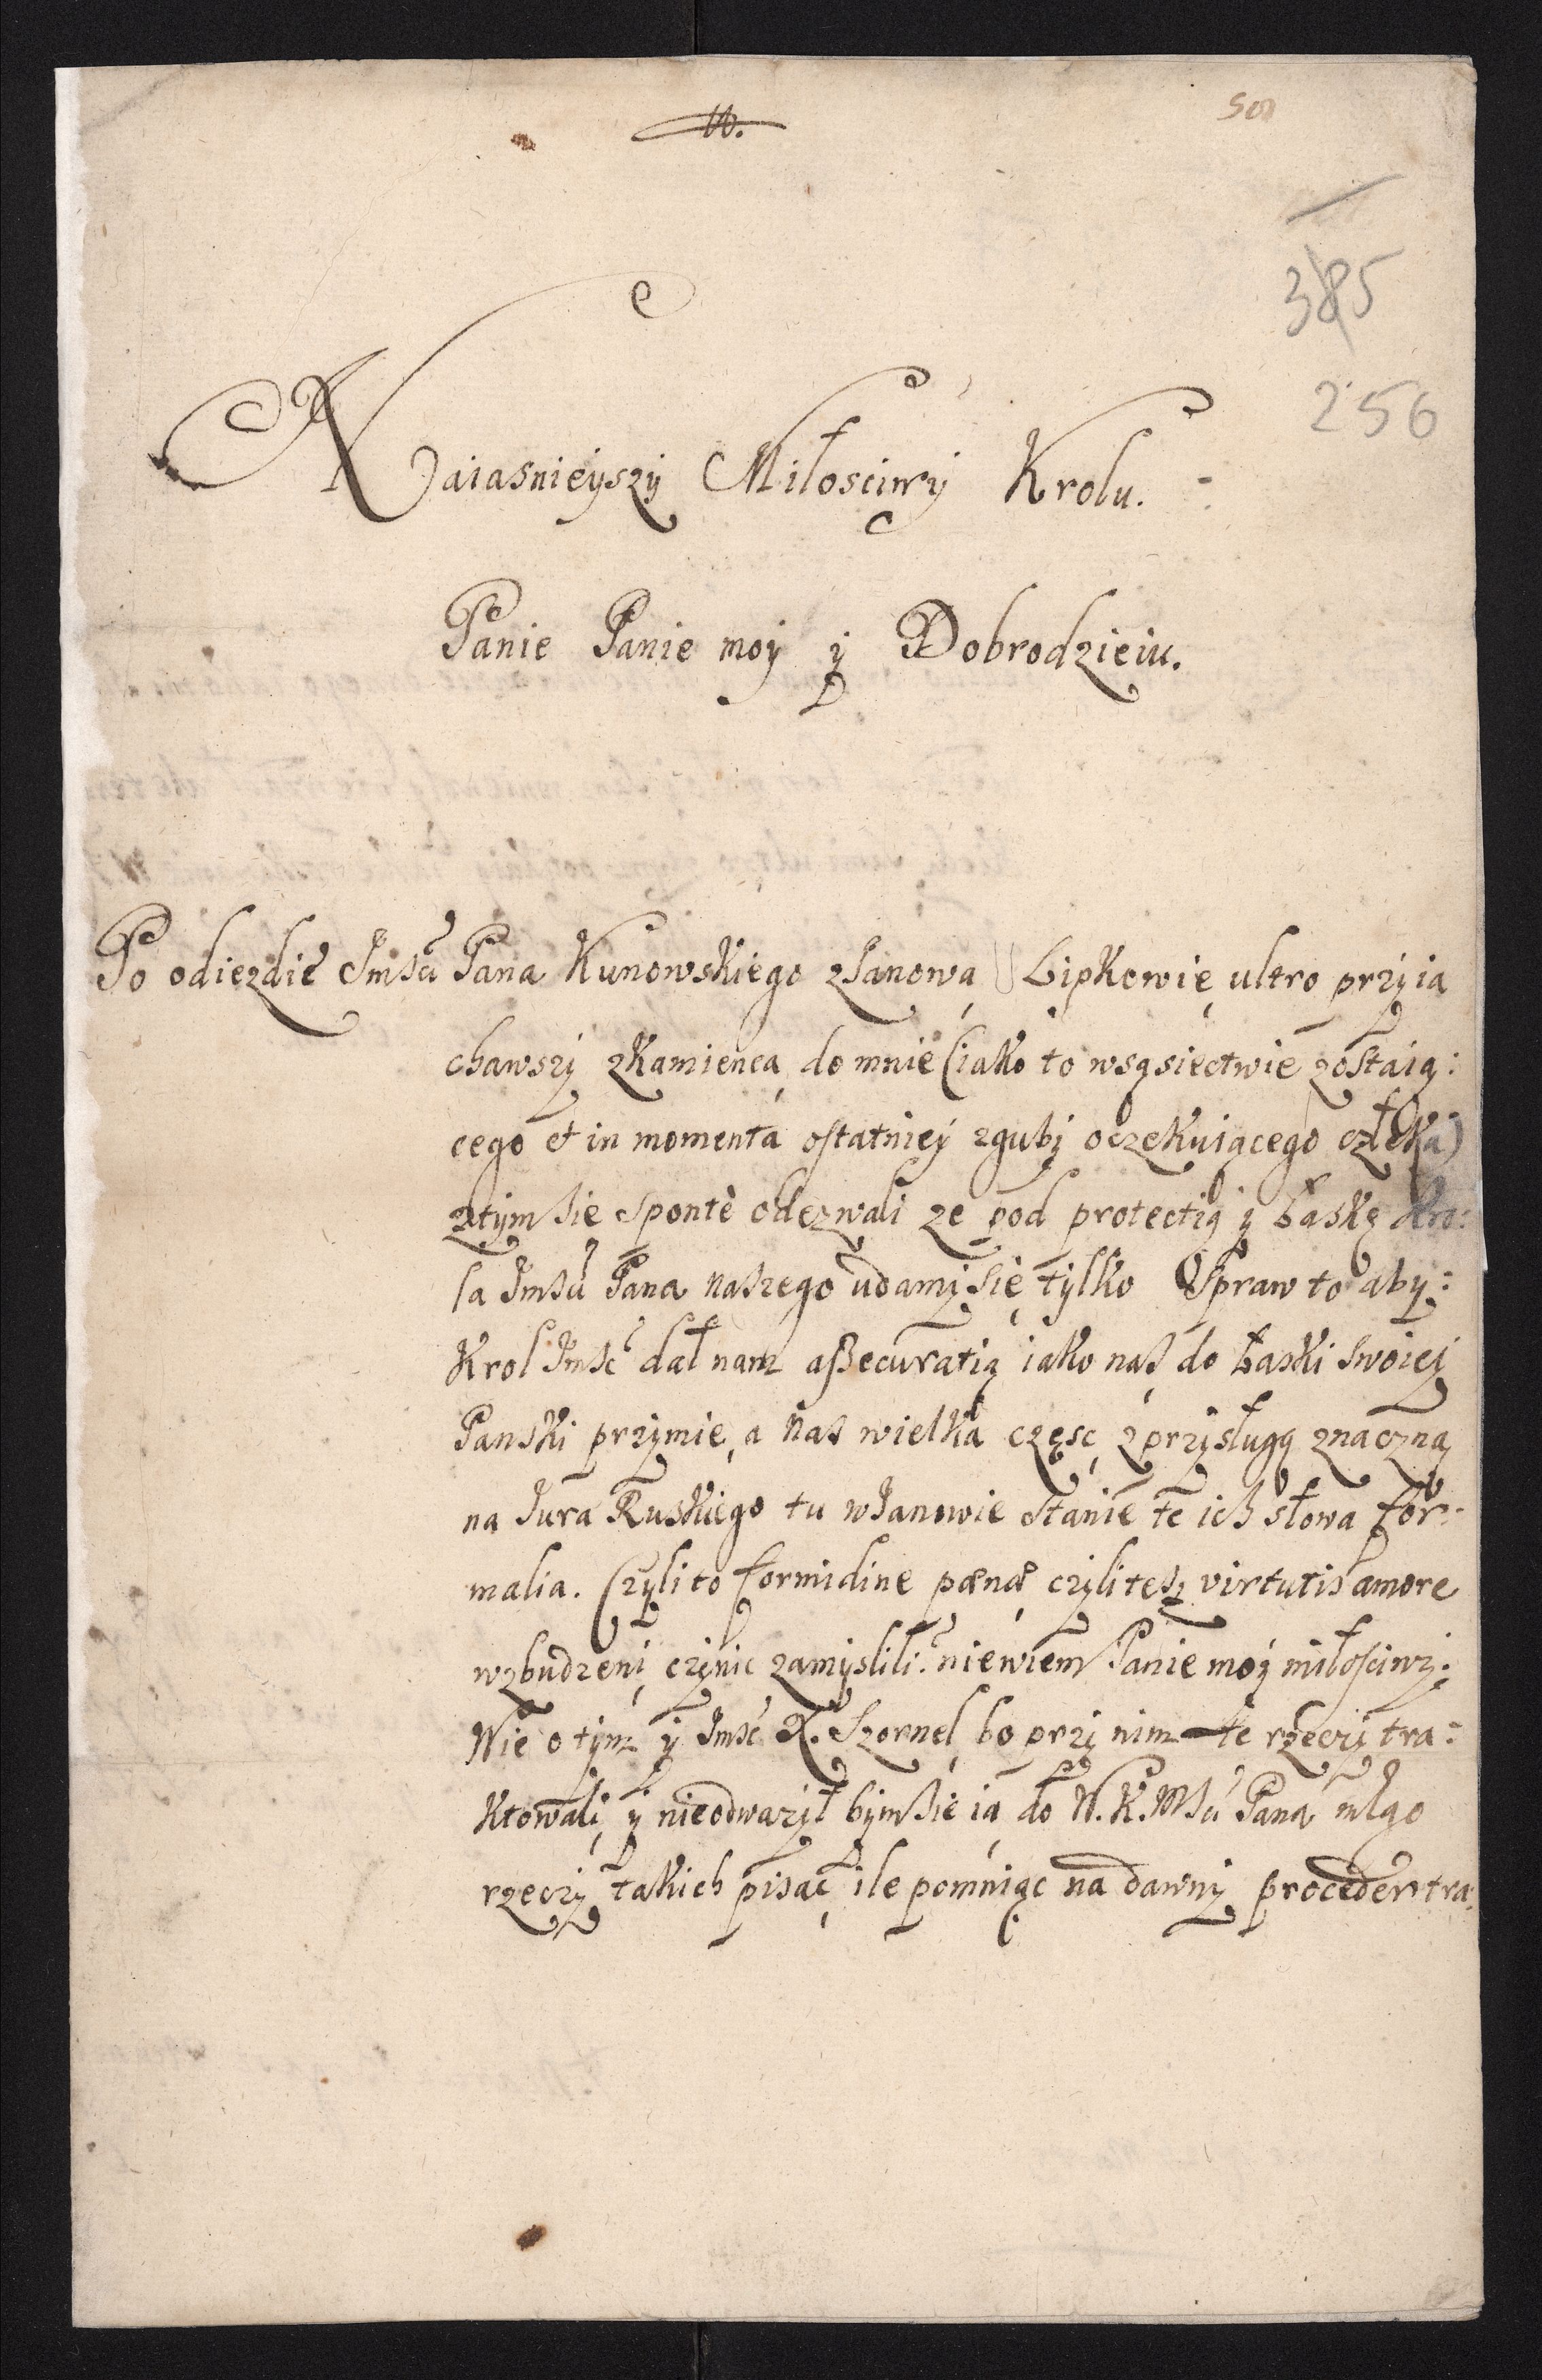 501
385
256
Naiasnieyszy Miłosciwy Krolu.
Panie Panie moy y Dobrodzieiu.
Po odiezdie Jmsci Pana Kunowskiego zJanowa Lipkowie ultro przyia
chawszy zKamienca do mnie (iako to wsąsiectwie zostaią:
cego et in momenta ostatniey zguby oczekuiącego człeka)
ztym sie sponte odezwali ze pod protectią y Łaskę Kro:
la Jmsci Pana naszego udamy się tylko Spraw to aby:
Krol Jmsc dał nam assecuratią iako nas do Łaski swoiey
Panski przymie, a nas wielka częsc zprzysługą znaczną
na Jura Ruskiego tu wJanowie stanie te ich słowa for:
malia. Czyli to formidine pænæ czyli tesz virtutis amore
wzbudzeni czynic zamyslili? niewiem Panie moy miłosciwy.
Wie o tym y Jmsc X. Szornel bo przy nim te rzeczy tra:
ktowali y nieodwazył bym sie ia do W.K.Msci Pana młgo
rzeczy takich pisac ile pomniąc na dawny proceder tra: